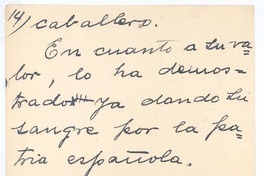 14) caballero.
En cuanto a su va-
lor, lo ha demos-
trado ya dando su
sangre por la pa-
tria española.